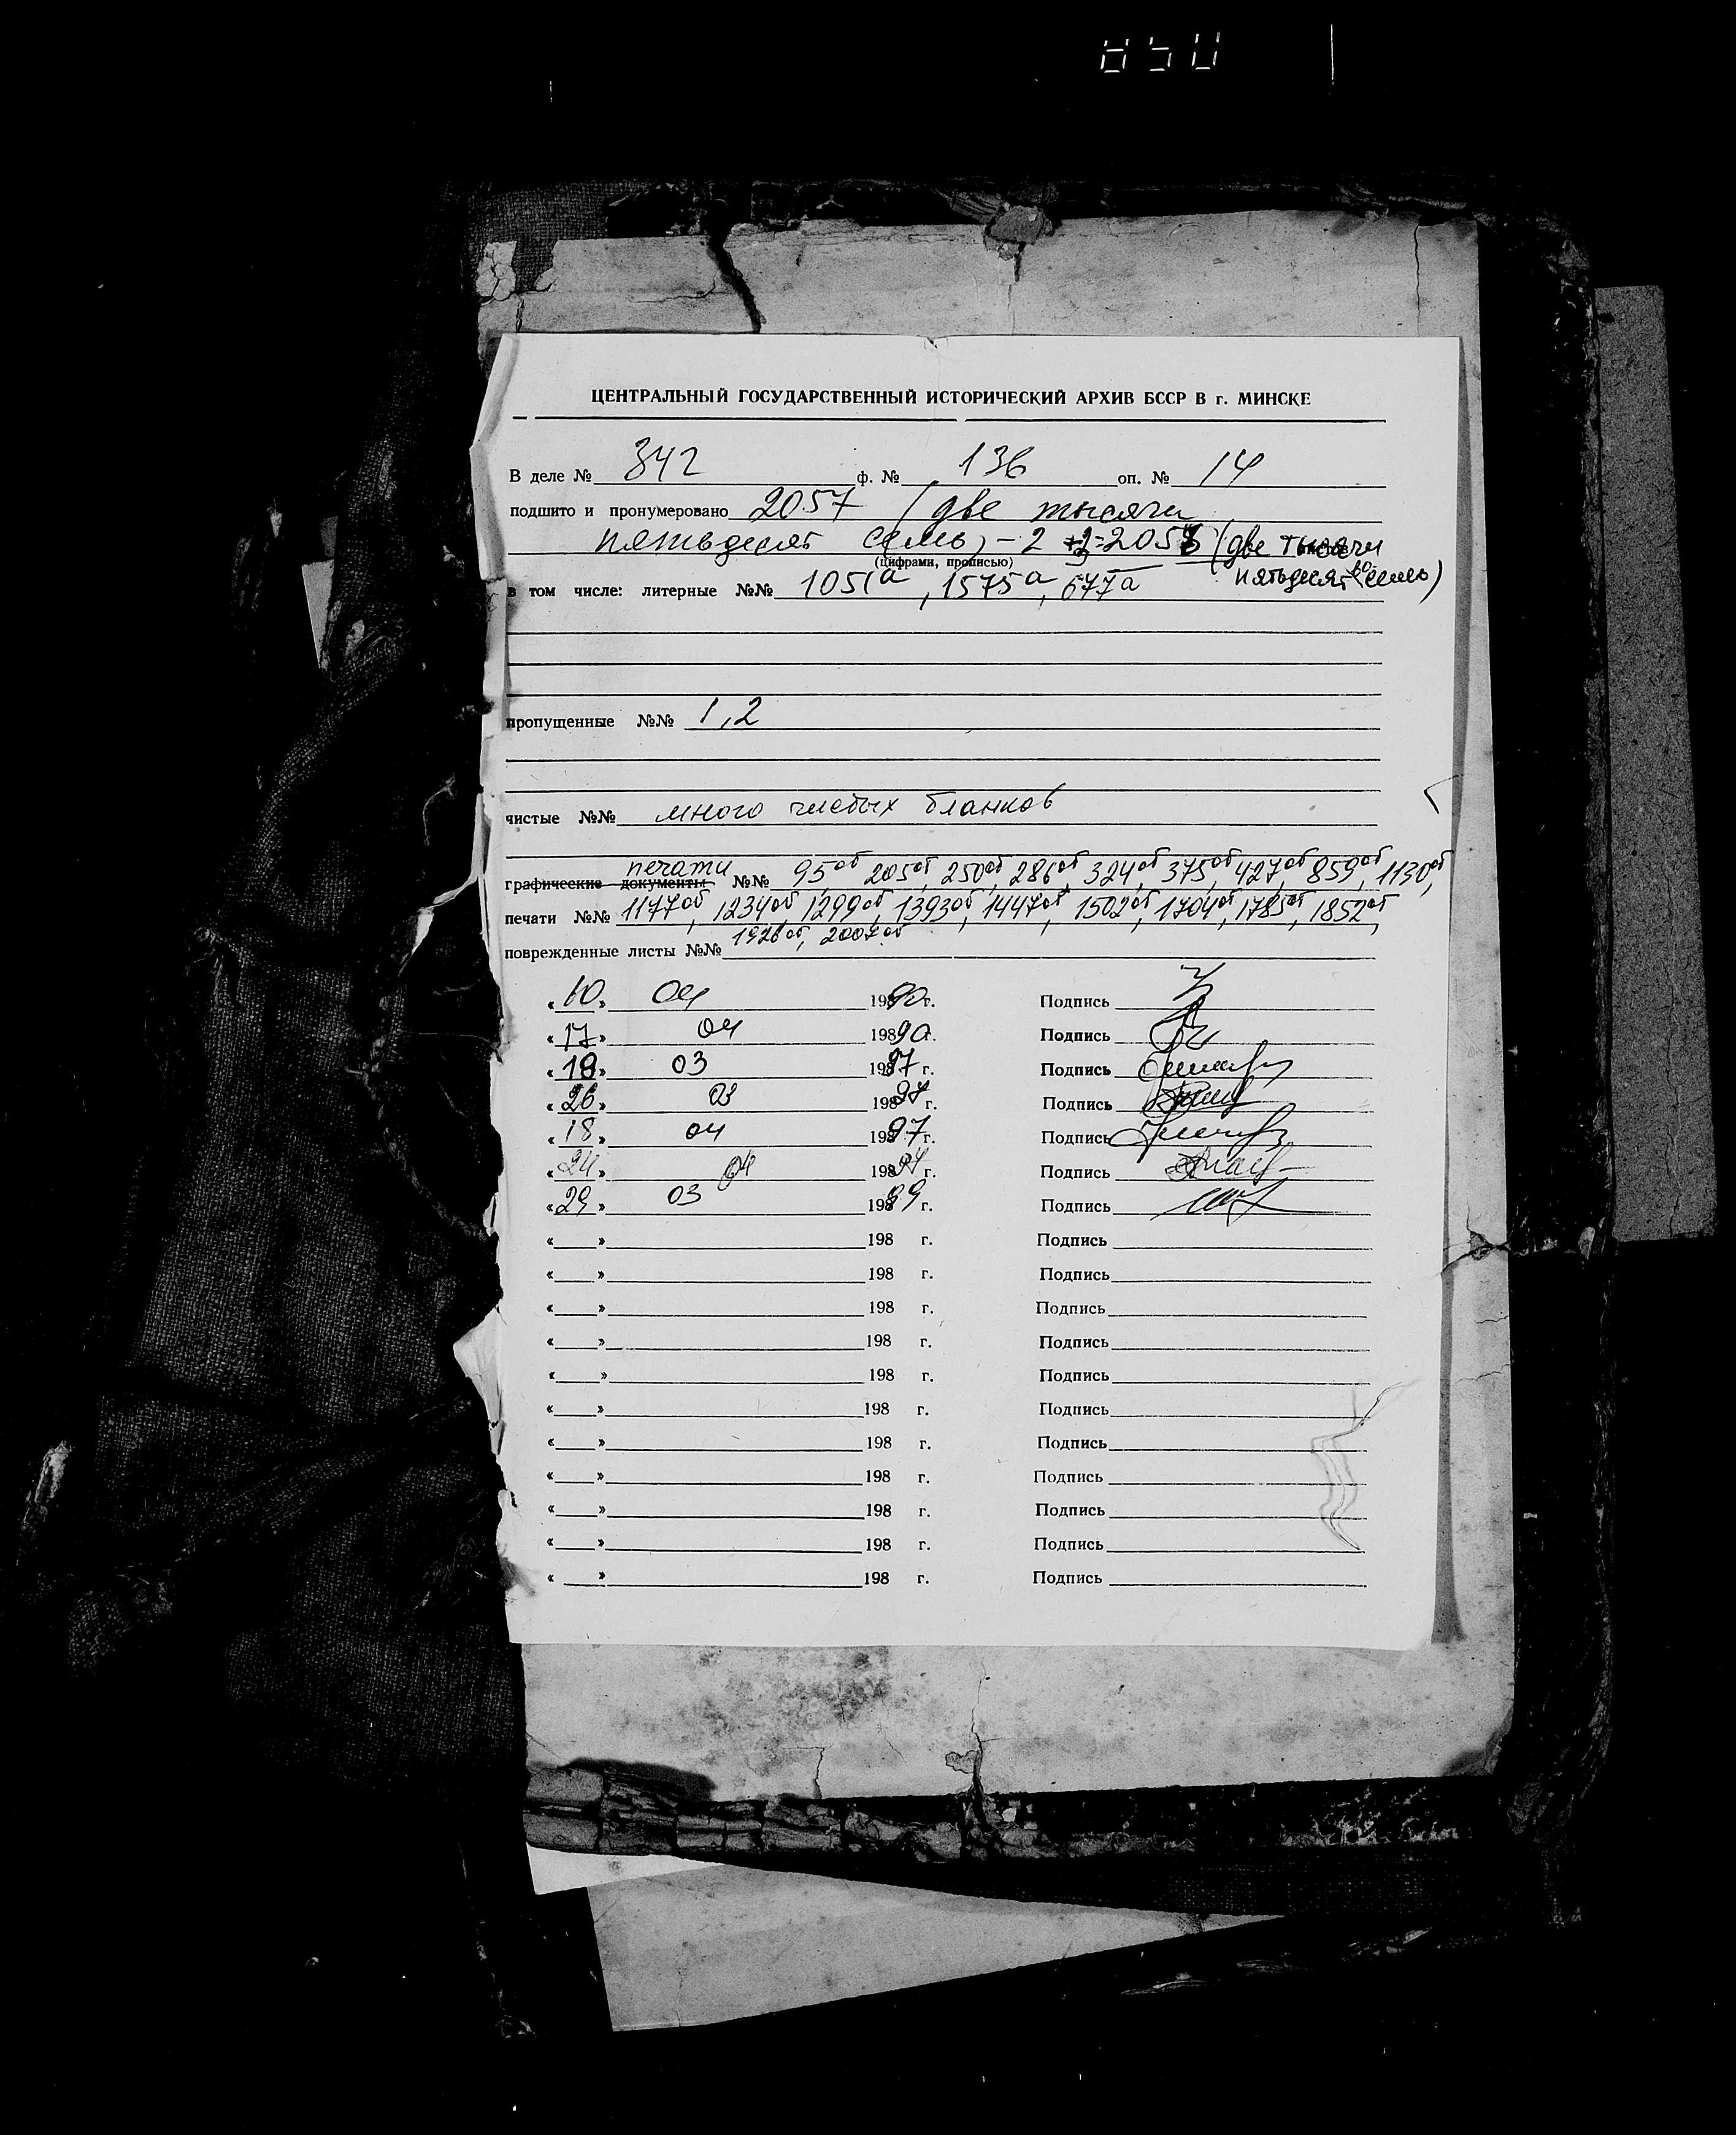 850
ЦЕНТРАЛЬНЫЙ ГОСУДАРСТВЕННЫЙ ИСТОРИЧЕСКИЙ АРХИВ БССР В г. МИНСКЕ
В деле № 342 ф. № 136 оп. № 14
подшито и пронумеровано 2057 (две тысячи
пятьдесят семь) – 2 +3=2058 (две тысячи
(цифрами, прописью) пятьдесят восемь)
в том числе: литерные №№ 1051а, 1575а, 677а
пропущенные №№ 1,2
чистые №№ много чистых бланков
печати
графические документы №№ 95об, 205об, 250об, 286об, 324об, 375об, 427об, 859об, 1130об,
печати №№ 1177об, 1234об, 1299об, 1393об, 1447об, 1502об, 1704об, 1785об, 1852об,
1926об, 2007об
поврежденные листы №№
«10» 04 1990 г. Подпись
«17» 04 19890 г. Подпись
«18» 03 1997 г. Подпись
«26» 03 19897 г. Подпись
«18» 04 1997 г. Подпись
«24» 04 19897 г. Подпись
«29» 03 19899 г. Подпись
« » 198 г. Подпись
« » 198 г. Подпись
« » 198 г. Подпись
« » 198 г. Подпись
« » 198 г. Подпись
« » 198 г. Подпись
« » 198 г. Подпись
« » 198 г. Подпись
« » 198 г. Подпись
« » 198 г. Подпись
« » 198 г. Подпись